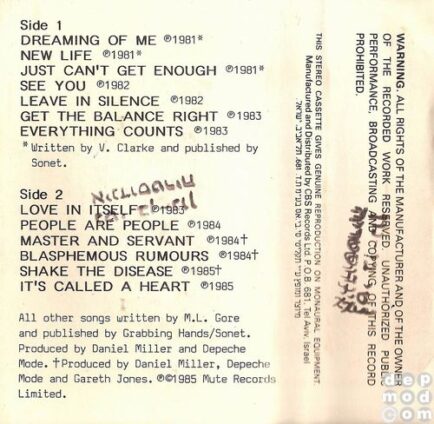 Side 1
DREAMING OF ME ℗1981*
NEW LIFE ℗1981*
JUST CAN'T GET ENOUGH ℗1981*
SEE YOU ℗1982
LEAVE IN SILENCE ℗1982
GET THE BALANCE RIGHT ℗1983
EVERYTHING COUNTS ℗1983
*Written by V. Clarke and published by
Sonet.
Side 2
LOVE IN ITSELF ℗1983
PEOPLE ARE PEOPLE ℗1984
MASTER AND SERVANT ℗1984†
BLASPHEMOUS RUMOURS ℗1984†
SHAKE THE DISEASE ℗1985†
IT'S CALLED A HEART ℗1985
All other songs written by M.L. Gore
and published by Grabbing Hands/Sonet.
Produced by Daniel Miller and Depeche
Mode. †Produced by Daniel Miller, Depeche
Mode and Gareth Jones. ℗©1985 Mute Records
Limited.
THIS STEREO CASSETTE GIVES GENUINE REPRODUCTION ON MONAURAL EQUIPMENT.
Manufactured and Distributed by CBS Records Ltd. P.O.B 681, Tel Aviv, Israel
WARNING. ALL RIGHTS OF THE MANUFACTURER AND OF THE OWNER
OF THE RECORDED WORK RESERVED. UNAUTHORIZED PUBLIC
PERFORMANCE, BROADCASTING AND COPYING OF THIS RECORD
PROHIBITED.
depmod.com